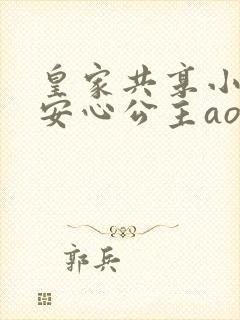 皇家共享小
安心公主ao
郭兵